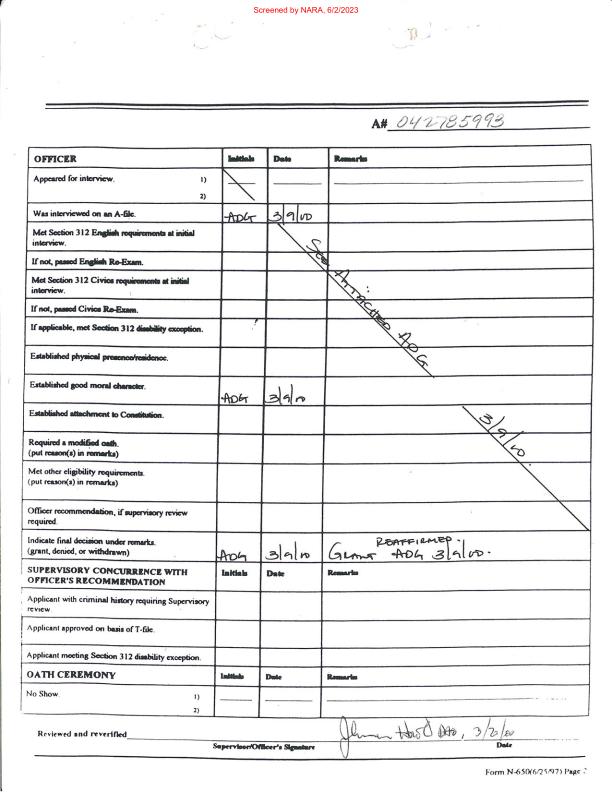 Screened by NARA, 6/2/2023
A# 042785993
OFFICER Initials Date Remarks
Appeared for interview. 1)
2)
Was interviewed on an A-file. ADG 3/9/00
Met Section 312 English requirements at initial
interview.
If not, passed English Re-Exam.
Met Section 312 Civics requirements at initial
interview.
If not, passed Civics Re-Exam.
If applicable, met Section 312 disability exception.
See Attached ADG
Established physical presence/residence.
Established good moral character. ADG 3/9/00
Established attachment to Constitution.
3/9/00
Required a modified oath.
(put reason(s) in remarks)
Met other eligibility requirements.
(put reason(s) in remarks)
Officer recommendation, if supervisory review
required.
Indicate final decision under remarks. REAFFIRMED.
(grant, denied, or withdrawn) ADG 3/9/00 Grant ADG 3/9/00.
SUPERVISORY CONCURRENCE WITH Initials Date Remarks
OFFICER'S RECOMMENDATION
Applicant with criminal history requiring Supervisory
review.
Applicant approved on basis of T-file.
Applicant meeting Section 312 disability exception.
OATH CEREMONY Initials Date Remarks
No Show. 1)
2)
Reviewed and reverified 3/20/00
Supervisor/Officer's Signature Date
Form N-650(6/25/97) Page 2